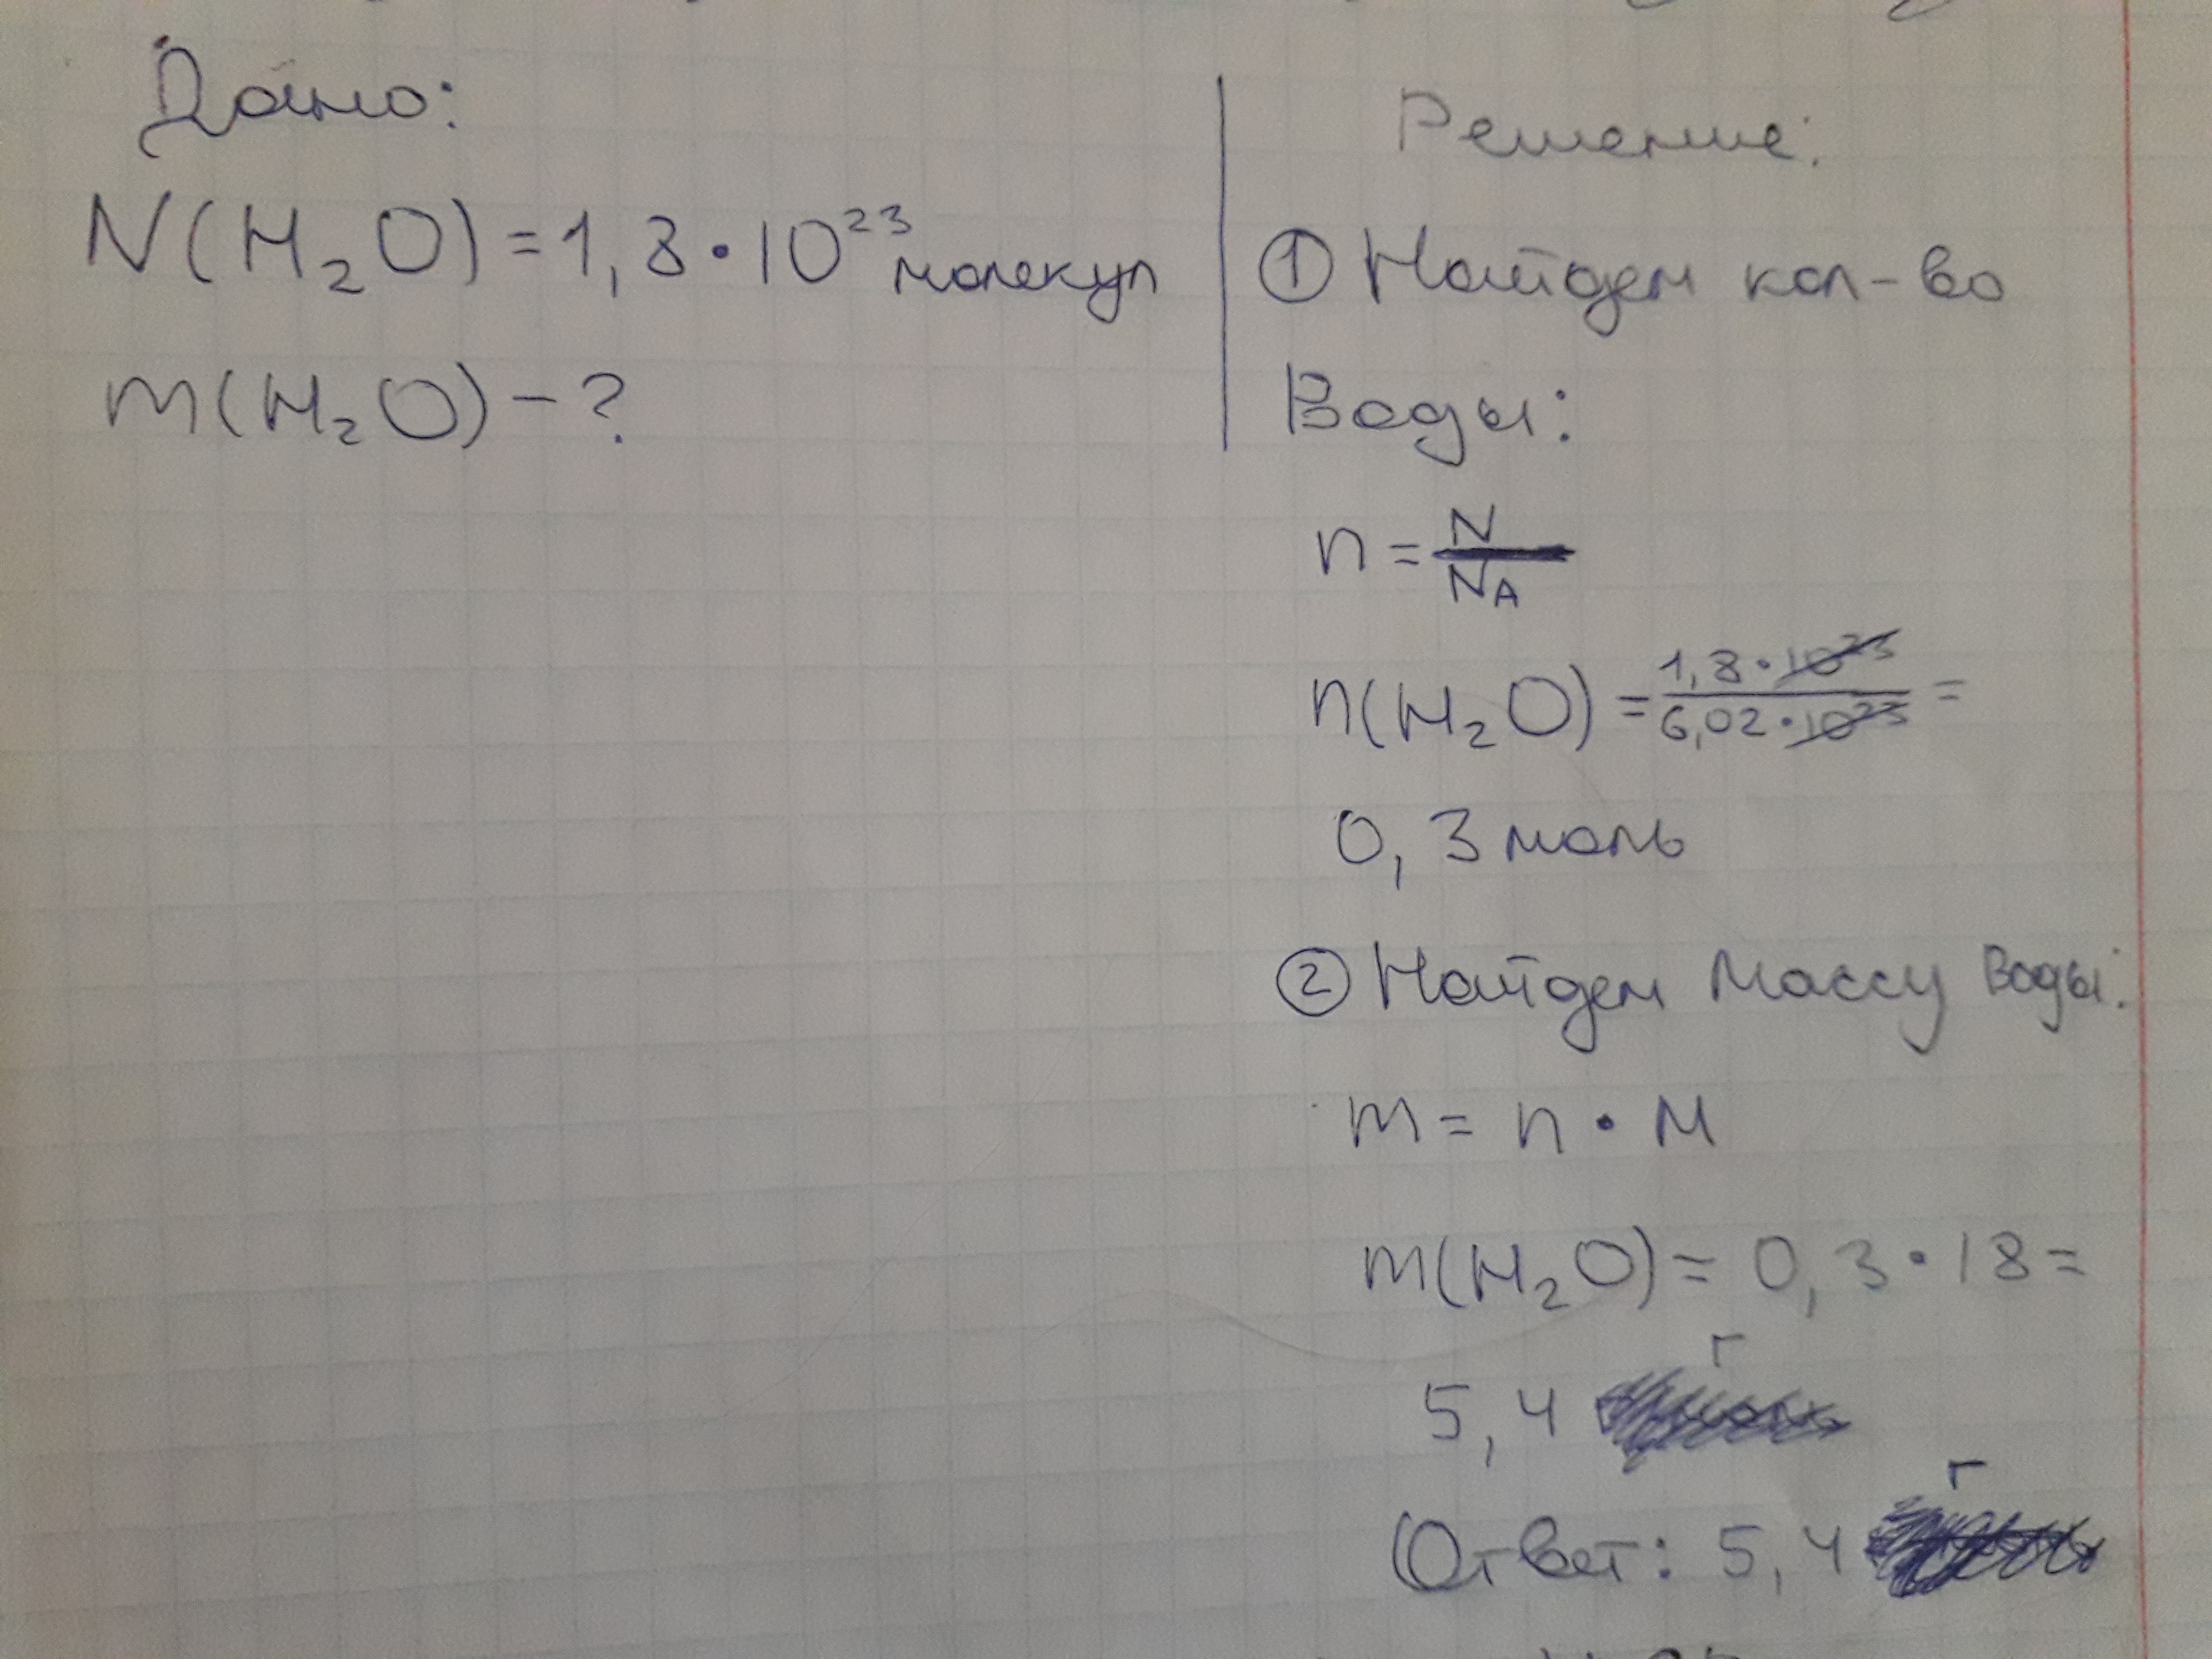 Дано:
N(H₂O) = 1,8 · 10²³ молекул
m(H₂O) – ?
Решение:
① Найдем кол-во
Воды:
n = N/Nᴀ
n(H₂O) = 1,8 · 10²³/6,02 · 10²³ =
0,3 моль
② Найдем Массу Воды:
m = n · M
m(H₂O) = 0,3 · 18 =
5,4 г
Ответ: 5,4 г